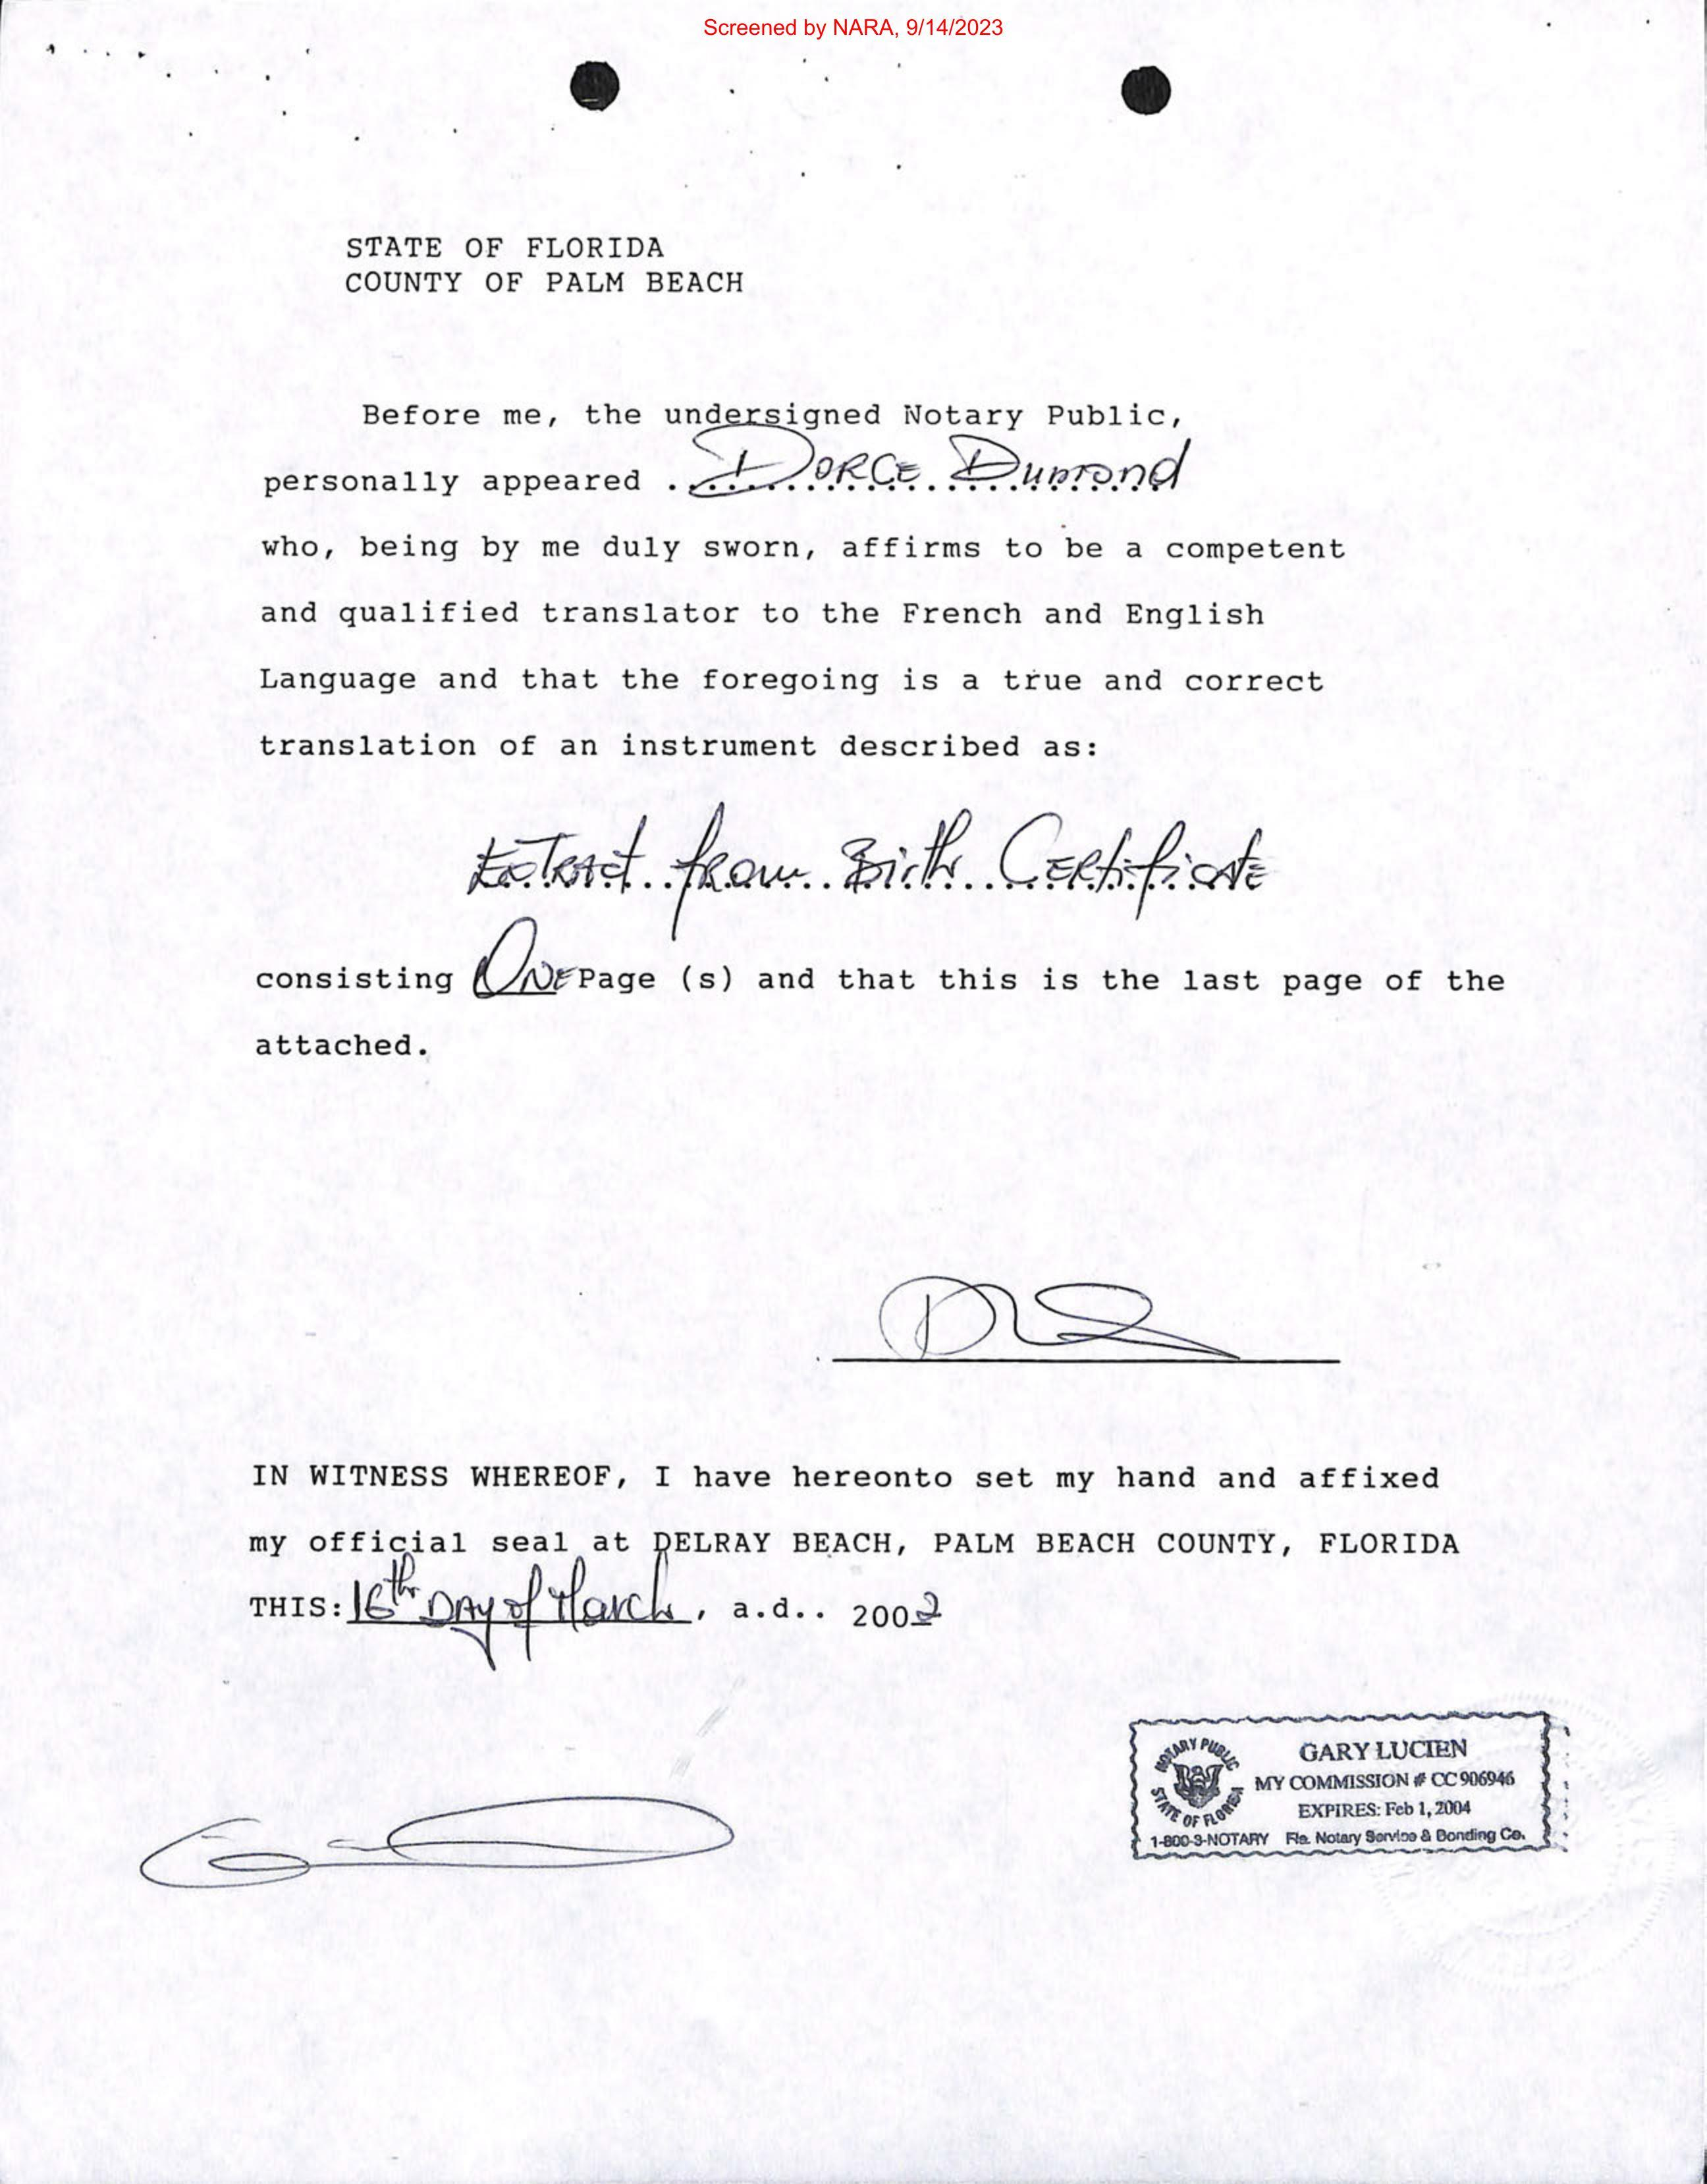 Screened by NARA, 9/14/2023
STATE OF FLORIDA
COUNTY OF PALM BEACH
Before me, the undersigned Notary Public,
personally appeared . DORCE Dumond
who, being by me duly sworn, affirms to be a competent
and qualified translator to the French and English
Language and that the foregoing is a true and correct
translation of an instrument described as:
Extract from Birth Certificate
consisting ONE Page (s) and that this is the last page of the
attached.
IN WITNESS WHEREOF, I have hereonto set my hand and affixed
my official seal at DELRAY BEACH, PALM BEACH COUNTY, FLORIDA
THIS: 16th DAY of March, a.d.. 2002
NOTARY PUBLIC
STATE OF FLORIDA
GARY LUCIEN
MY COMMISSION # CC 906946
EXPIRES: Feb 1, 2004
1-800-3-NOTARY Fla. Notary Service & Bonding Co.